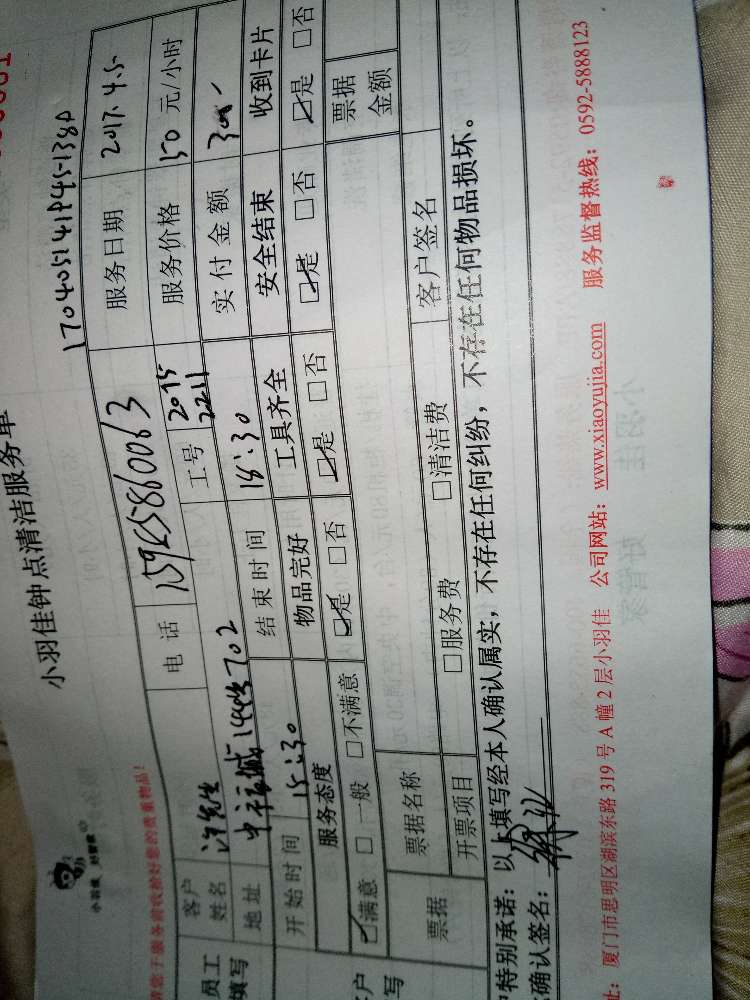 小羽佳钟点清洁服务单
小羽佳 好管家
请您于服务前收检好您的贵重物品!
员工填写 客户姓名 许先生 电话 15925860063 服务日期 2017.4.5
工号 2075 2211 服务价格 50 元/小时
地址 702 实付金额 300
开始时间 15:30 结束时间 18:30
服务态度 物品完好 工具齐全 安全结束 收到卡片
☑满意 □一般 □不满意 ☑是 □否 ☑是 □否 ☑是 □否 ☑是 □否
票据 票据名称 票据金额
开票项目 □服务费 □清洁费 客户签名
特别承诺:以上填写经本人确认属实,不存在任何纠纷,不存在任何物品损坏。
确认签名:
址:厦门市思明区湖滨东路 319 号 A 幢 2 层小羽佳 公司网站:www.xiaoyujia.com 服务监督热线:0592-5888123